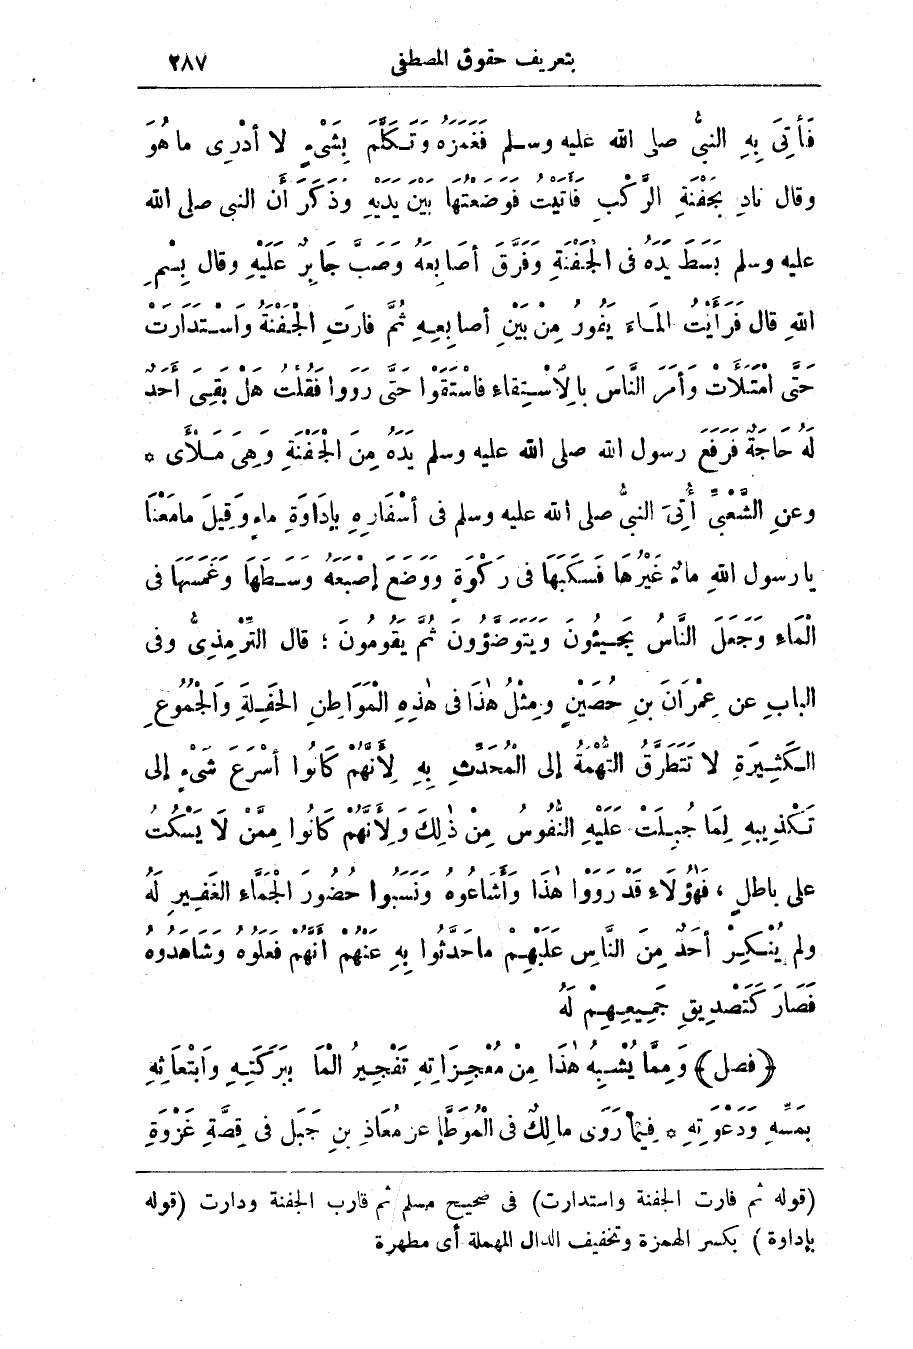 بتعريف حقوق المصطفى ٢٨٧
فَأُتِىَ بِهِ النبىُّ صلى الله عليه وسلم فَغَمَزَهُ وَتَكَلَّمَ بِشَىْءٍ لا أدْرِى ما هُوَ
وقال نَادِ بِجَفْنَةِ الرَّكْبِ فَأَتَيْتُ فَوَضَعْتُهَا بَيْنَ يَدَيْهِ وَذَكَرَ أَن النبى صلى الله
عليه وسلم بَسَطَ يَدَهُ فى الْجَفْنَةِ وَفَرَّقَ أصَابِعَهُ وَصَبَّ جَابِرٌ عَلَيْهِ وقال بِسْمِ
اللهِ قال فَرَأَيْتُ المَاءَ يَفُورُ مِنْ بَيْنِ أصابِعِهِ ثُمَّ فارَتِ الْجَفْنَةُ وَاسْتَدَارَتْ
حَتَّى امْتَلَأَتْ وَأمَرَ النَّاسَ بالاِسْتِقاءِ فاسْتَقَوْا حَتَّى رَوَوا فَقُلْتُ هَلْ بَقِىَ أَحَدٌ
لَهُ حَاجَةٌ فَرَفَعَ رسول الله صلى الله عليه وسلم يَدَهُ مِنَ الْجَفْنَةِ وَهِىَ مَلْأَى *
وعنِ الشَّعْبِىِّ أُتِىَ النبىُّ صلى الله عليه وسلم فى أسْفَارِهِ بِإدَاوَةِ ماءٍ وَقِيلَ مامَعَنَا
يارسول اللهِ ماءٌ غَيْرُهَا فَسَكَبَهَا فى رَكْوَةٍ وَوَضَعَ إصْبَعَهُ وَسَطَهَا وَغَمَسَهَا فى
الْمَاءِ وَجَعَلَ النَّاسُ يَجِيئُونَ وَيَتَوَضَّؤُونَ ثُمَّ يَقُومُونَ ؛ قال التِّرْمِذِىُّ وفى
البابِ عن عِمْرَانَ بنِ حُصَيْنٍ ومِثْلُ هٰذَا فى هٰذِهِ الْمَوَاطِنِ الحَفِلَةِ وَالْجُمُوعِ
الكَثِيرَةِ لا تَتَطَرَّقُ التُّهْمَةُ إلى الْمُحَدِّثِ بِهِ لِأَنَّهُمْ كَانُوا أسْرَعَ شَىْءٍ إلى
تَكْذِيبِهِ لِمَا جُبِلَتْ عَلَيْهِ النُّفُوسُ مِنْ ذٰلِكَ وَلِأَنَّهُمْ كَانُوا مِمَّنْ لَا يَسْكُتُ
على باطلٍ ، فَهٰؤُلَاءِ قَدْ رَوَوْا هٰذَا وَأَشَاعُوهُ وَنَسَبُوا حُضُورَ الْجَمَّاءِ الغَفِيرِ لَهُ
ولم يُنْكِرْ أحَدٌ مِنَ النَّاسِ عَلَيْهِمْ ماحَدَّثُوا بِهِ عَنْهُمْ أَنَّهُمْ فَعَلُوهُ وَشَاهَدُوهُ
فَصَارَ كَتَصْدِيقِ جَمِيعِهِمْ لَهُ
﴿فصل﴾ وَمِمَّا يُشْبِهُ هٰذَا مِنْ مُعْجِزَاتِهِ تَفْجِيرُ الْمَا بِبَرَكَتِهِ وَابْتِعَاثِهِ
بِمَسِّهِ وَدَعْوَتِهِ * فِيمَا رَوَى مالِكٌ فى الْمُوَطَّإ عن مُعَاذِ بنِ جَبَلٍ فى قِصَّةِ غَزْوَةِ
(قوله ثم فارت الجفنة واستدارت) فى صحيح مسلم ثم فارب الجفنة ودارت (قوله
بإداوة) بكسر الهمزة وتخفيف الدال المهملة أى مطهرة